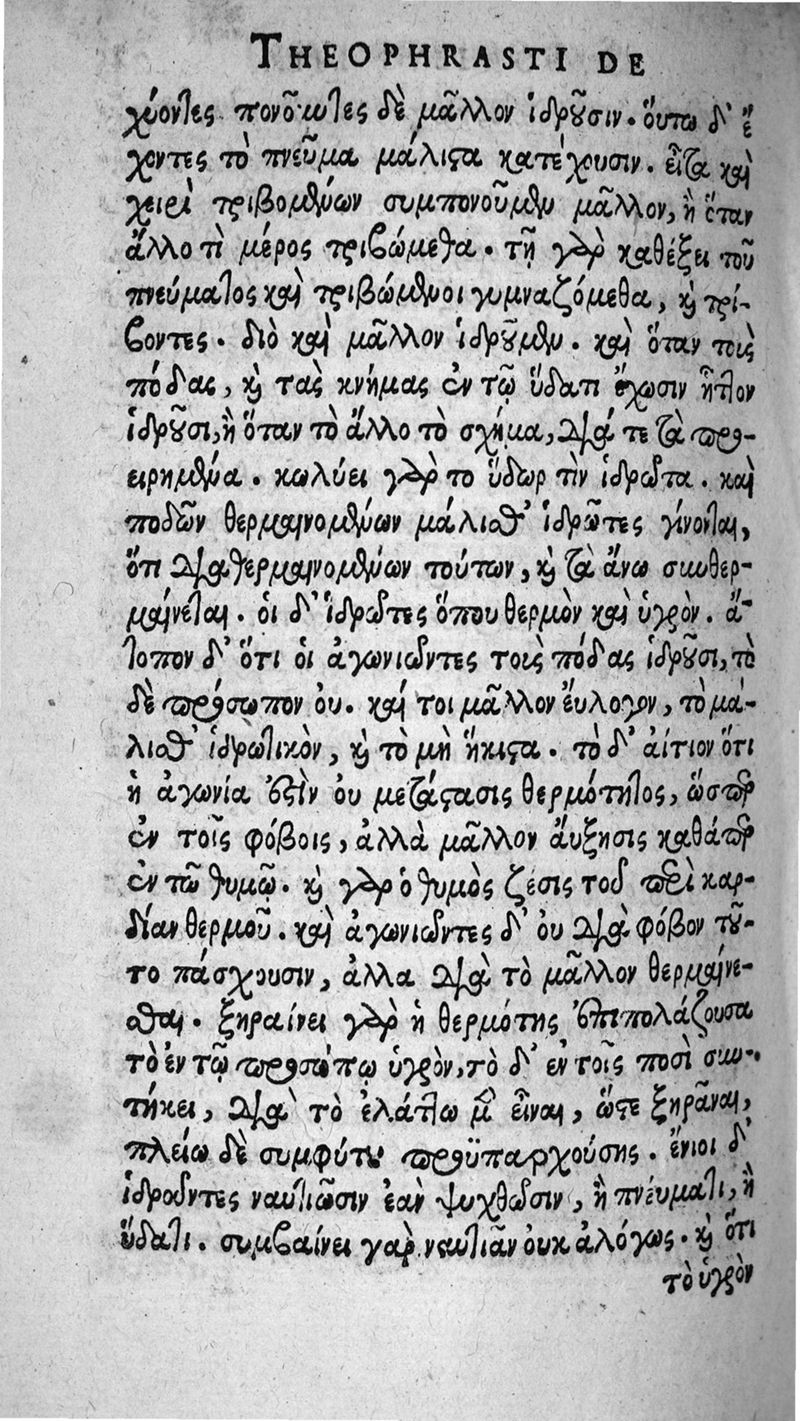 THEOPHRASTI DE
χύοντες. πονοῦντες δὲ μᾶλλον ἱδροῦσιν. ὅυτω δ' ἔ
χοντες τὸ πνεῦμα μάλιςα κατέχουσιν. εἶτα καὶ
χειρὶ τριβομένων συμπονοῦμεν μᾶλλον, ἢ ὅταν
ἄλλο τὶ μέρος τριβώμεθα. τῇ γὰρ καθέξει τοῦ
πνεύματος καὶ τριβόμενοι γυμναζόμεθα, καὶ τρί-
βοντες. διὸ καὶ μᾶλλον ἱδροῦμεν. καὶ ὅταν τοὺς
πόδας, καὶ τὰς κνήμας ἐν τῷ ὕδατι ἔχωσιν ἧττον
ἱδροῦσι, ἢ ὅταν τὸ ἄλλο τὸ σχῆμα, διά τε τὰ προ-
ειρημένα. κωλύει γὰρ το ὕδωρ τὴν ἱδρῶτα. καὶ
ποδῶν θερμαινομένων μάλισθ' ἱδρῶτες γίνονται,
ὅτι διαθερμαινομένων τούτων, καὶ τὰ ἄνω συνθερ-
μαίνεται. οἱ δ' ἱδρῶτες ὅπου θερμὸν καὶ ὑγρὸν. ἄ-
τοπον δ' ὅτι οἱ ἀγωνιῶντες τοὺς πόδας ἱδροῦσι, τὸ
δὲ πρόσωπον ου. καί τοι μᾶλλον ἔυλογον, τὸ μά-
λισθ' ἱδρωτικὸν, καὶ τὸ μὴ ἥκιςα. τὸ δ' ἀίτιον ὅτι
ἡ ἀγωνία ἐστὶν ου μετάςασις θερμότητος, ὥσπερ
ἐν τοῖς φόβοις, ἀλλὰ μᾶλλον ἄυξησις καθάπερ
ἐν τῷ θυμῷ. καὶ γὰρ ὁ θυμὸς ζέσις τοῦ περὶ καρ-
δίαν θερμοῦ. καὶ ἀγωνιῶντες δ' ὀυ διὰ φόβον τοῦ-
το πάσχουσιν, ἀλλα διὰ τὸ μᾶλλον θερμαίνε-
σθαι. ξηραίνει γὰρ ἡ θερμότης ἐπιπολάζουσα
τὸ ἐν τῷ προσώπῳ ὑγρὸν, τὸ δ' ἐν τοῖς ποσὶ συν-
τήκει, διὰ τὸ ἐλάττω μὲν εἶναι, ὥςε ξηρᾶναι,
πλείω δὲ συμφύτου προϋπαρχούσης. ἔνιοι δ'
ἱδροῦντες ναυτιῶσιν ἐὰν ψυχθῶσιν, ἢ πνέυματι, ἢ
ὕδατι. συμβαίνει γαρ ναυτιᾶν ουκ ἀλόγως. καὶ ὅτι
τὸ ὑγρὸν